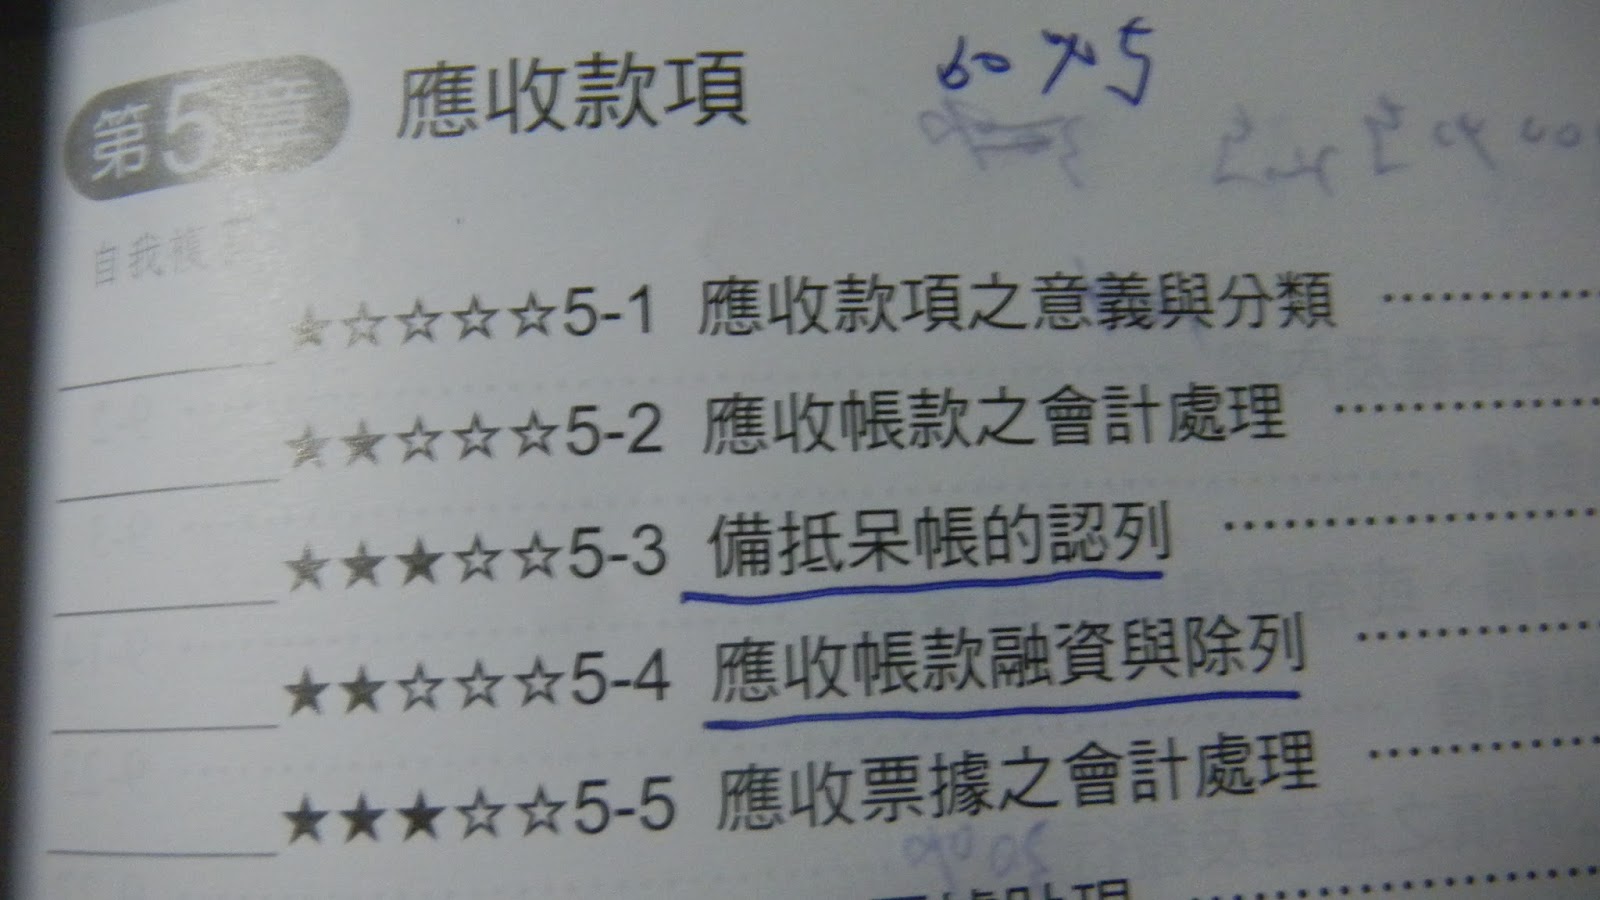 第5章 應收款項
自我複
★☆☆☆☆5-1 應收款項之意義與分類
★★☆☆☆5-2 應收帳款之會計處理
★★★☆☆5-3 備抵呆帳的認列
★★☆☆☆5-4 應收帳款融資與除列
★★★☆☆5-5 應收票據之會計處理